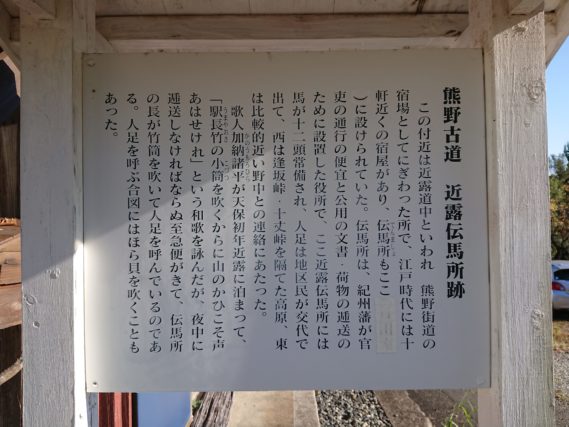 熊野古道　近露伝馬所跡
この付近は近露道中といわれ　熊野街道の
宿場としてにぎわった所で、江戸時代には十
軒近くの宿屋があり、伝馬所もここ
）に設けられていた。伝馬所は、紀州藩が官
吏の通行の便宜と公用の文書・荷物の逓送の
ために設置した役所で、ここ近露伝馬所には
馬が十二頭常備され、人足は地区民が交代で
出て、西は逢坂峠・十丈峠を隔てた高原、東
は比較的近い野中との連絡にあたった。
歌人加納諸平が天保初年近露に泊まつて、
「駅長竹の小筒を吹くからに山のかひこそ声
あはせけれ」という和歌を詠んだが、夜中に
逓送しなければならぬ至急便がきて、伝馬所
の長が竹筒を吹いて人足を呼んでいるのであ
る。人足を呼ぶ合図にはほら貝を吹くことも
あった。